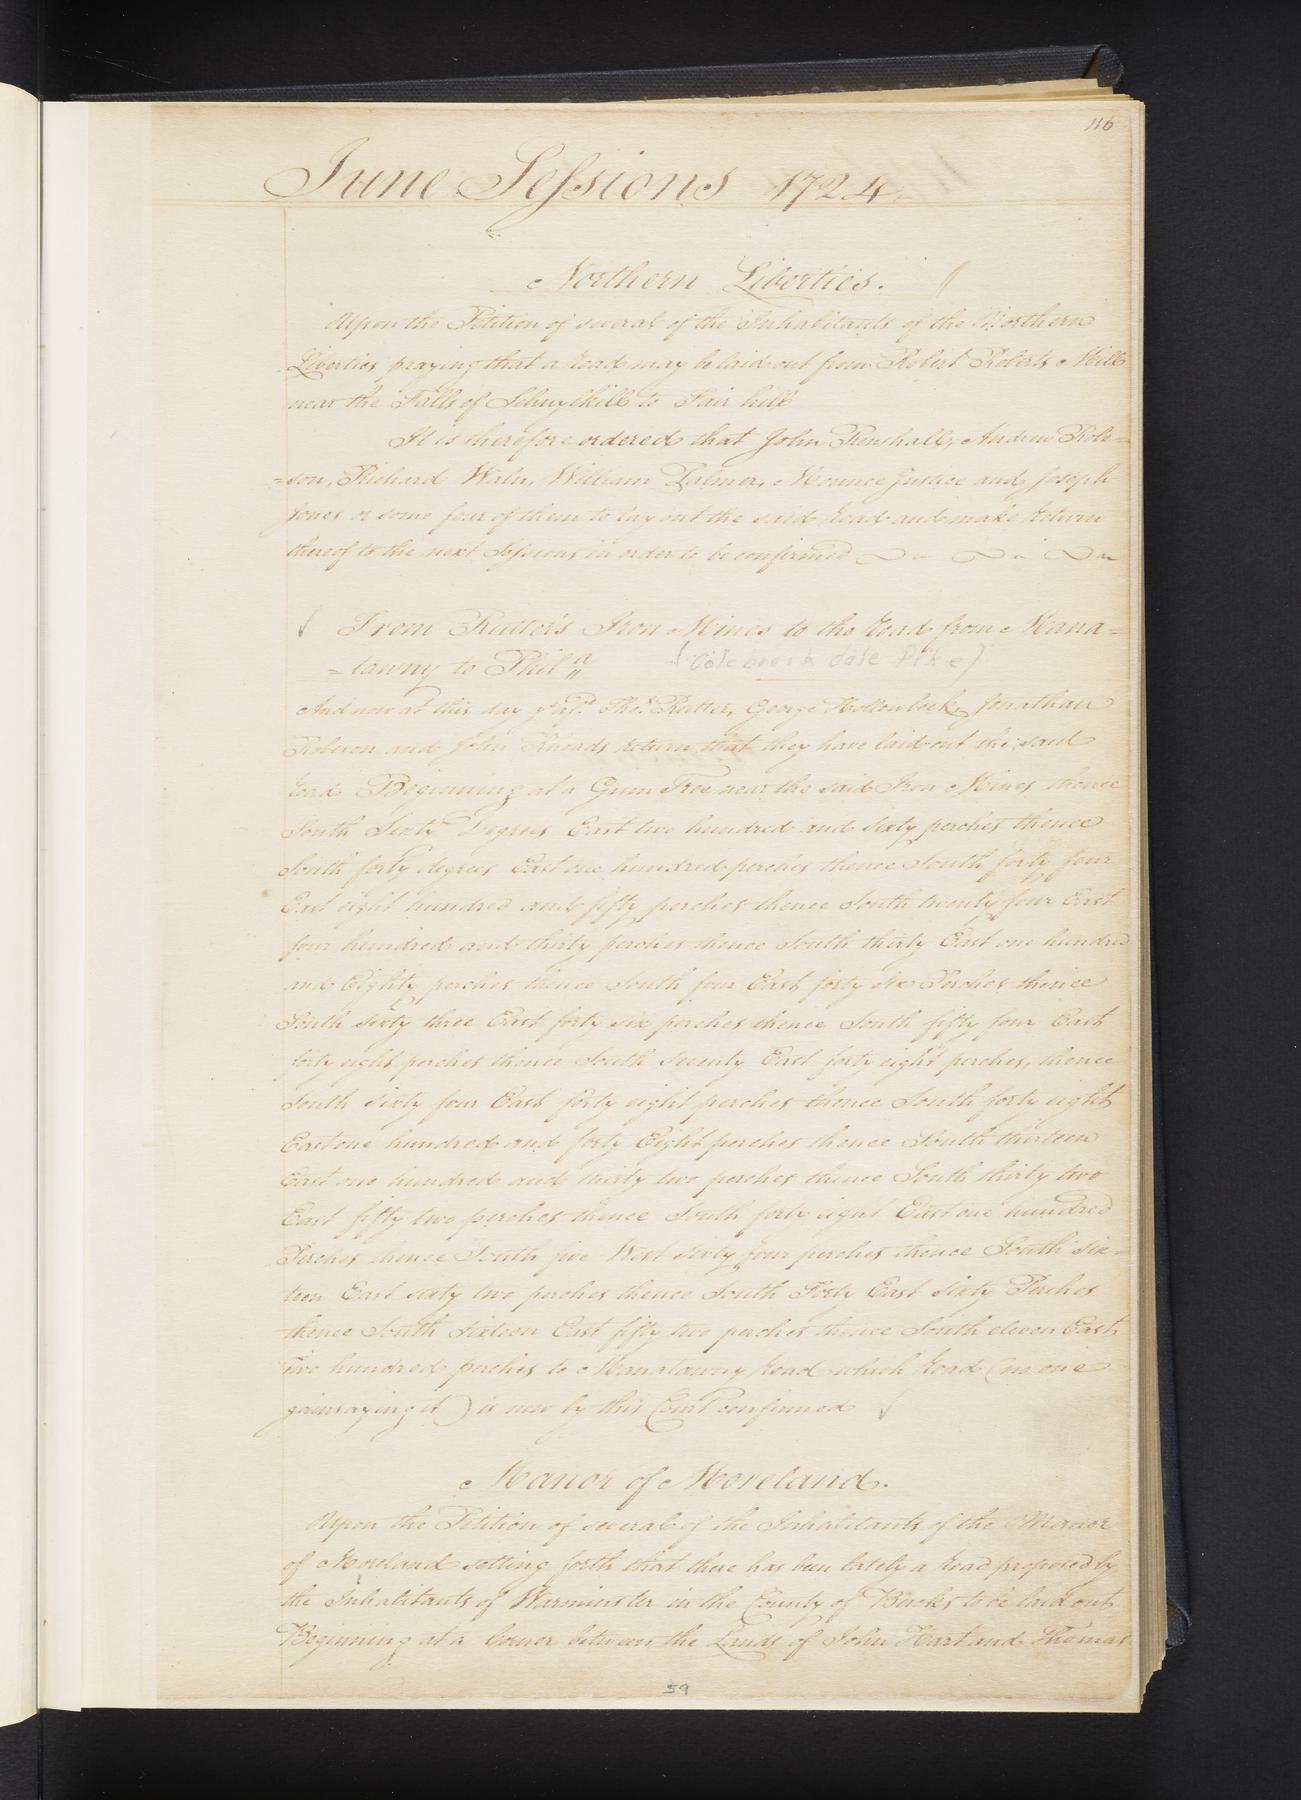 116
June Sessions 1724
Northern Liberties.
Upon the Petition of several of the Inhabitants of the Northern
Liberties praying that a road may be laid out from Robert Roberts Mill
near the Falls of Schuylkill to Fair hill
It is therefore ordered that John Renshall, Andrew Robe=
=son, Richard Waln, William Palmer, Mounce Justice and Joseph
Jones or some four of them to lay out the said road and make return
thereof to the next Sessions in order to be confirmed
From Rutter's Iron Mines to the road from Mana=
=tawny to Phil.a
(Colebrook dale Pike)
And now at this day Tho.s Rutter, George Hollowback, Jonathan
Roberson and John Rhoads return that they have laid out the said
road Beginning at a Gum Tree near the said Iron Mines thence
South Sixty Degrees East two hundred and sixty perches thence
South forty degrees East one hundred perches thence South forty four
East eight hundred and fifty perches thence South twenty four East
four hundred and thirty perches thence South thirty East one hundred
and Eighty perches thence South four East forty six Perches thence
South sixty three East forty six perches thence South fifty four East
forty eight perches thence South seventy East forty eight perches, thence
South sixty four East forty eight perches thence South forty eight
East one hundred and forty Eight perches thence South thirteen
East one hundred and thirty two perches thence South thirty two
East fifty two perches thence South forty eight East one hundred
Perches thence South five West sixty four perches thence South six=
teen East sixty two perches thence South Forty East sixty Perches
thence South sixteen East fifty two perches thence South eleven East
two hundred perches to Manatawny road which road (no one
gainsaying it) is now by this Court confirmed
Manor of Moreland.
Upon the Petition of several of the Inhabitants of the Manor
of Moreland setting forth that there has been lately a road proposed by
the Inhabitants of Warminster in the County of Bucks to be laid out
Beginning at a Corner between the Lands of John Hart and Thomas
59